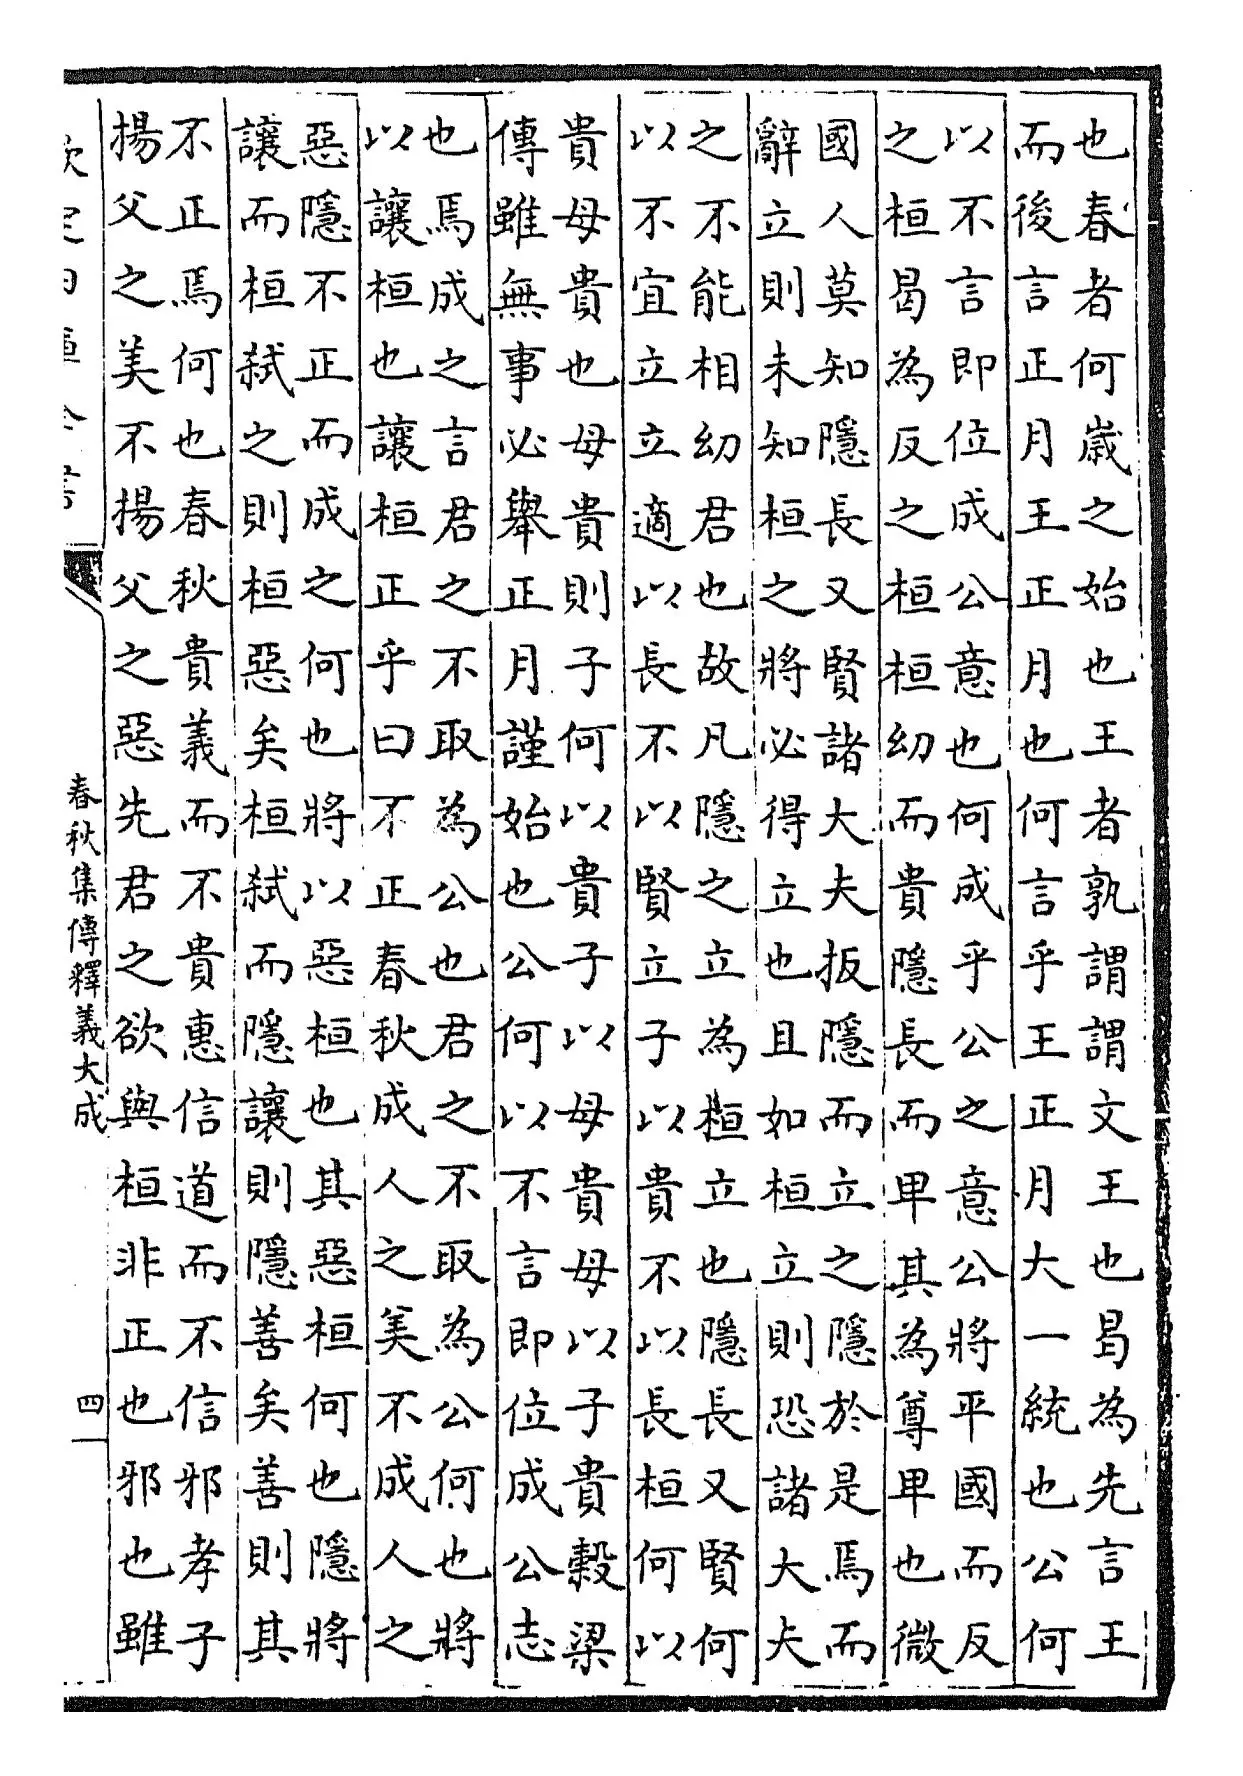 也春者何歲之始也王者孰謂謂文王也曷為先言王
而後言正月王正月也何言乎王正月大一統也公何
以不言即位成公意也何成乎公之意公將平國而反
之桓曷為反之桓桓幼而貴隱長而卑其為尊卑也微
國人莫知隱長又賢諸大夫扳隱而立之隱於是焉而
辭立則未知桓之將必得立也且如桓立則恐諸大夫
之不能相幼君也故凡隱之立為桓立也隱長又賢何
以不宜立立適以長不以賢立子以貴不以長桓何以
貴母貴也母貴則子何以貴子以母貴母以子貴穀梁
傳雖無事必舉正月謹始也公何以不言即位成公志
也焉成之言君之不取為公也君之不取為公何也將
以讓桓也讓桓正乎曰不正春秋成人之美不成人之
惡隱不正而成之何也將以惡桓也其惡桓何也隱將
讓而桓弑之則桓惡矣桓弑而隱讓則隱善矣善則其
不正焉何也春秋貴義而不貴惠信道而不信邪孝子
揚父之美不揚父之惡先君之欲與桓非正也邪也雖
春秋集傳釋義大成
四